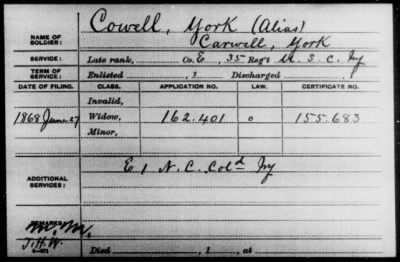 Cowell, York (Alias)
NAME OF SOLDIER: Carwell, York
SERVICE: Late rank, Co. E, 35 Reg't U.S.C. Inf
TERM OF SERVICE: Enlisted , 1 Discharged , 1
DATE OF FILING. CLASS. APPLICATION NO. LAW. CERTIFICATE NO.
Invalid,
1868 June 27 Widow, 162.401 0 155.683
Minor,
E 1 N.C. Col'd Inf
ADDITIONAL SERVICES:
REMARKS:
J.H.W.
Died , 1 , at